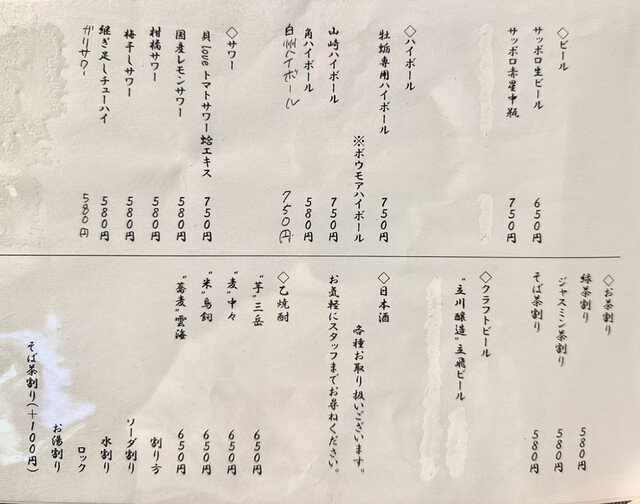 ◇ビール
サッポロ生ビール 650円
サッポロ赤星中瓶 750円
◇ハイボール
牡蛎専用ハイボール 750円
※ボウモアハイボール
山崎ハイボール 750円
角ハイボール 580円
白州ハイボール 750円
◇サワー
貝loveトマトサワー蛤エキス 750円
国産レモンサワー 580円
柑橘サワー 580円
梅干しサワー 580円
継ぎ足しチューハイ 580円
ガリサワー 580円
◇お茶割り
緑茶割り 580円
ジャスミン茶割り 580円
そば茶割り 580円
◇クラフトビール
"立川醸造"立飛ビール
◇日本酒
各種お取り扱いございます。
お気軽にスタッフまでお尋ねください。
◇乙焼酎
"芋"三岳 650円
"麦"中々 650円
"米"鳥飼 650円
"蕎麦"雲海 650円
割り方
ソーダ割り
水割り
ロック
お湯割り
そば茶割り(+100円)